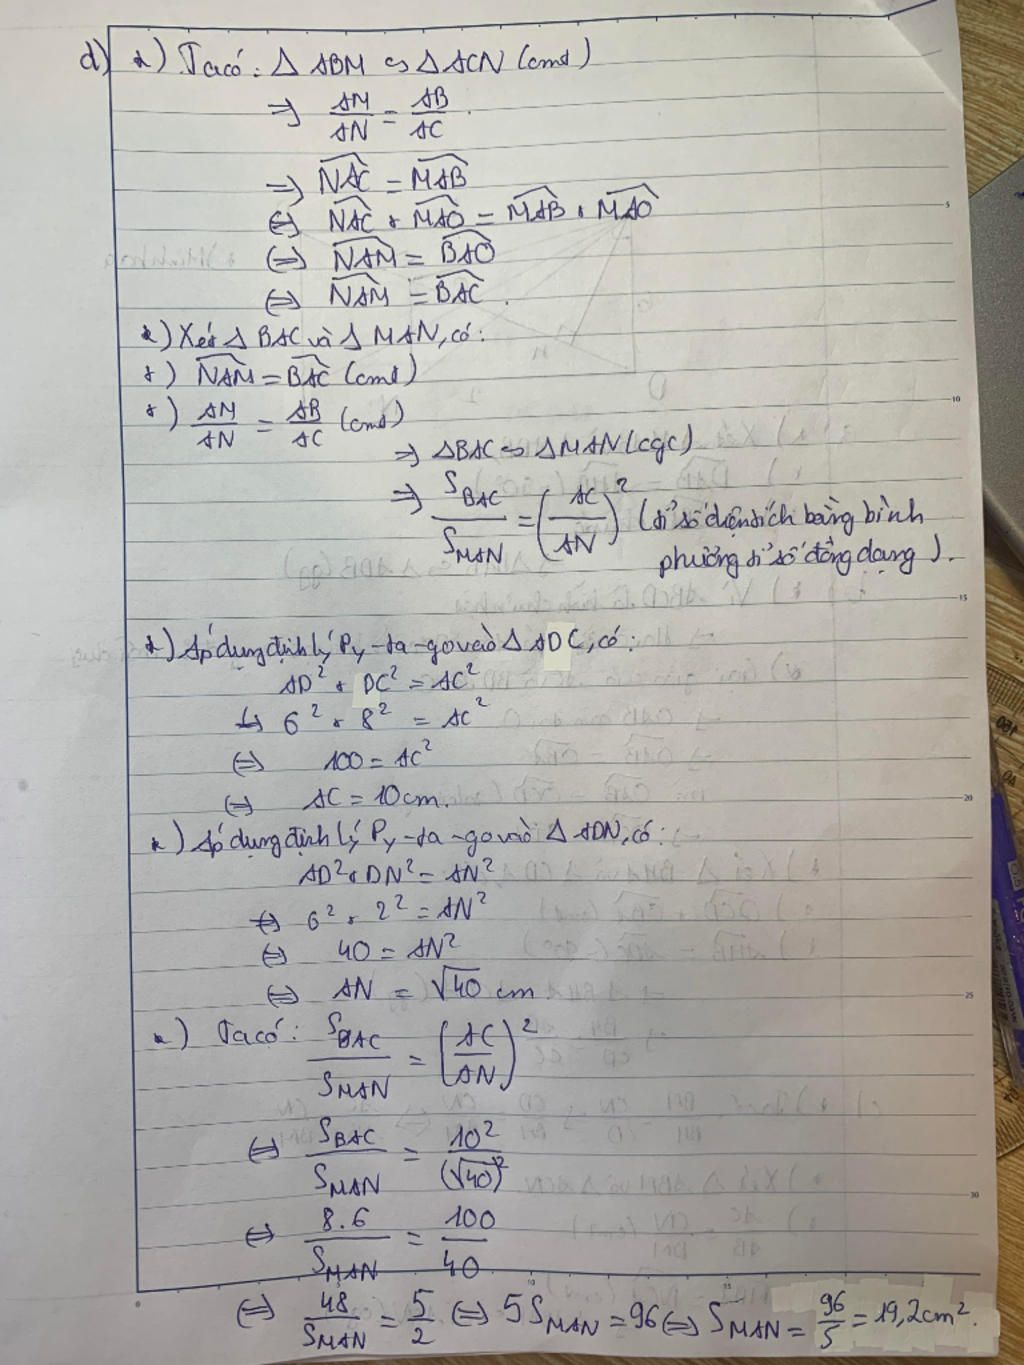 d) *) Ta có: Δ ABM ∽ Δ ACN (cmt)
=> AM/AN = AB/AC.
=> \widehat{NAC} = \widehat{MAB}
<=> \widehat{NAC} + \widehat{MAO} = \widehat{MAB} + \widehat{MAO}
<=> \widehat{NAM} = \widehat{BAO}
<=> \widehat{NAM} = \widehat{BAC}.
*) Xét Δ BAC và Δ MAN, có:
+) \widehat{NAM} = \widehat{BAC} (cmt)
+) AM/AN = AB/AC (cmt)
=> ΔBAC ∽ ΔMAN (cgc)
=> S_{BAC}/S_{MAN} = (AC/AN)^2 (tỉ số diện tích bằng bình
phương tỉ số đồng dạng).
*) Áp dụng định lý Py-ta-go vào Δ ADC, có:
AD^2 + DC^2 = AC^2
<=> 6^2 + 8^2 = AC^2
<=> 100 = AC^2
<=> AC = 10cm.
*) Áp dụng định lý Py-ta-go vào Δ ADN, có:
AD^2 + DN^2 = AN^2
<=> 6^2 + 2^2 = AN^2
<=> 40 = AN^2
<=> AN = √40 cm
*) Ta có: S_{BAC}/S_{MAN} = (AC/AN)^2
<=> S_{BAC}/S_{MAN} = 10^2/(√40)^2
<=> 8.6/S_{MAN} = 100/40
<=> 48/S_{MAN} = 5/2 <=> 5 S_{MAN} = 96 <=> S_{MAN} = 96/5 = 19,2cm^2.